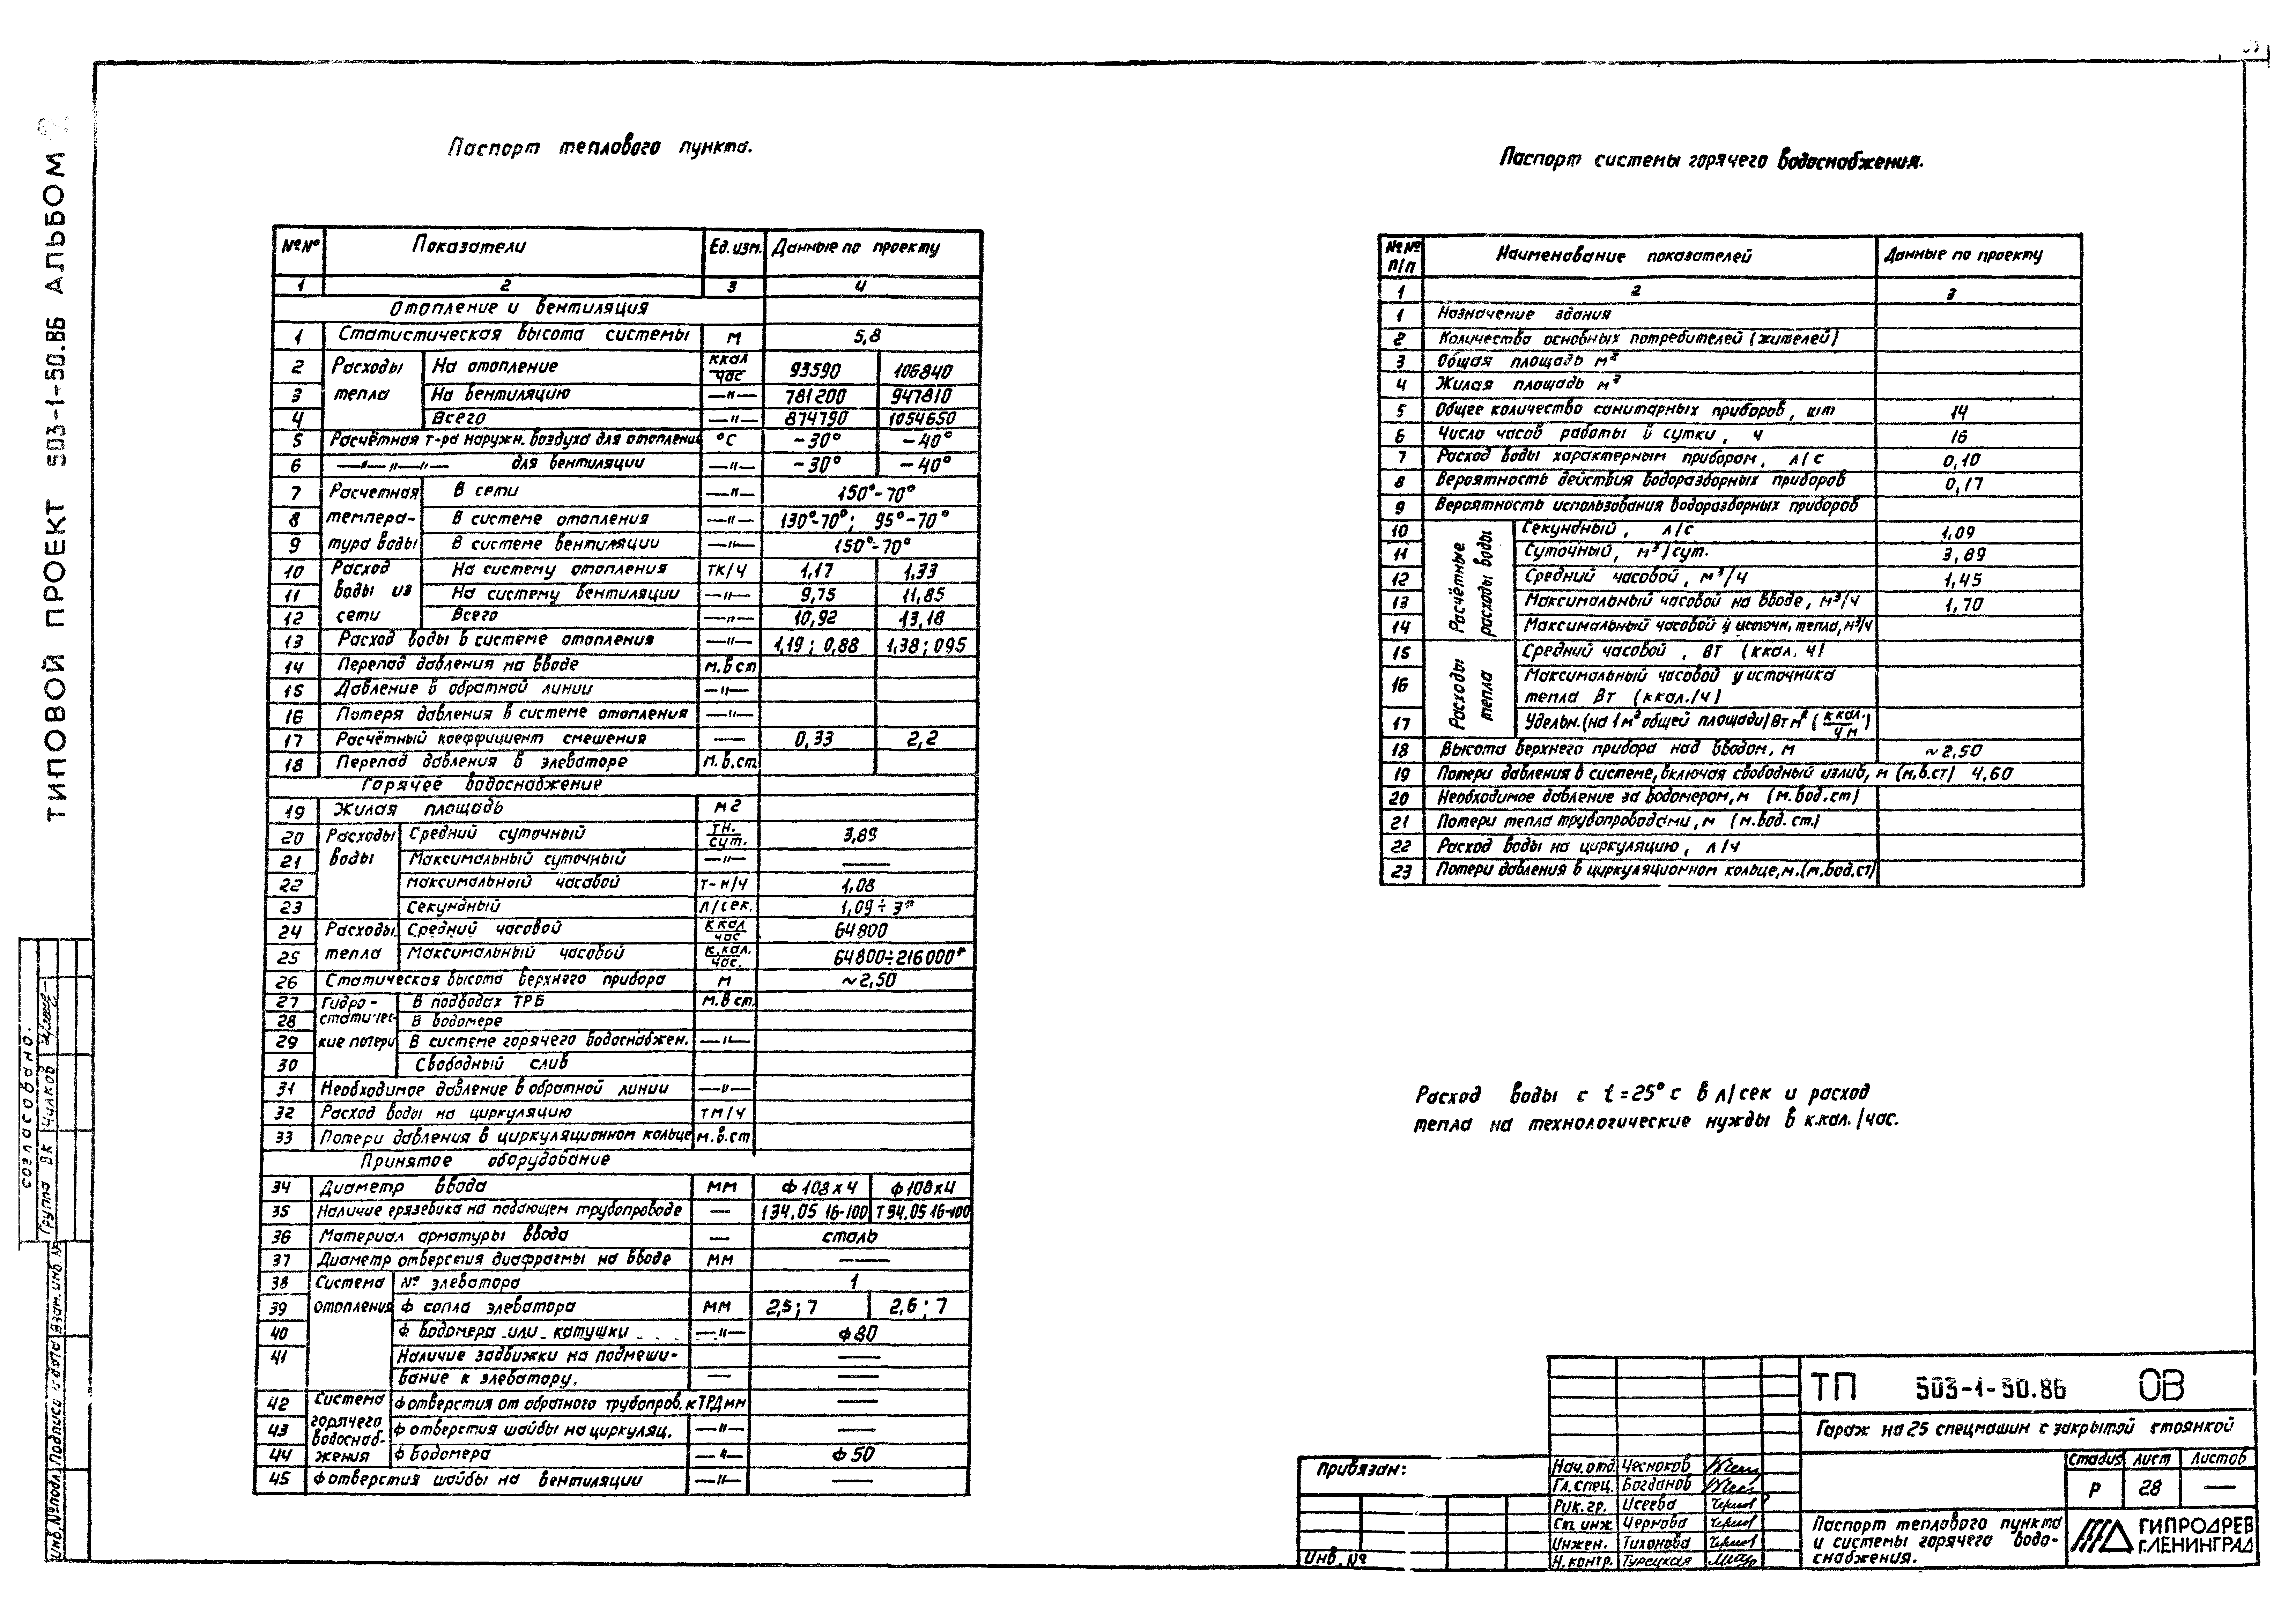 ТИПОВОЙ ПРОЕКТ 503-1-50.86 АЛЬБОМ 2
Паспорт теплового пункта.
№№ Показатели Ед.изм. Данные по проекту
1 2 3 4
Отопление и вентиляция
1 Статистическая высота системы м 5,8
2 Расходы На отопление ккал/час 93590 106840
3 тепла На вентиляцию —"— 781200 947810
4 Всего —"— 874790 1054650
5 Расчётная т-ра наружн. воздуха для отоплени °С -30° -40°
6 —"— "—"— для вентиляции —"— -30° -40°
7 Расчетная В сети —"— 150°-70°
8 темпера- В системе отопления —"— 130°-70°; 95°-70°
9 тура воды В системе вентиляции —"— 150°-70°
10 Расход На систему отопления тк/ч 1,17 1,33
11 воды из На систему вентиляции —"— 9,75 11,85
12 сети Всего —"— 10,92 13,18
13 Расход воды в системе отопления —"— 1,19; 0,88 1,38; 095
14 Перепад давления на вводе м.в ст
15 Давление в обратной линии —"—
16 Потеря давления в системе отопления —"—
17 Расчётный коеффициент смешения — 0,33 2,2
18 Перепад давления в элеваторе м.в.ст
Горячее водоснабжение
19 Жилая площадь м2
20 Расходы Средний суточный тн./сут. 3,89
21 воды Максимальный суточный —"— —
22 максимальный часовой т-н/ч 1,08
23 Секундный л/сек. 1,09÷3*
24 Расходы Средний часовой ккал/час 64800
25 тепла Максимальный часовой к.кал./час. 64800÷216000*
26 Статическая высота верхнего прибора м ~2,50
27 Гидро- В подводах ТРБ м.в ст.
28 статичес- В водомере
29 кие потери В системе горячего водоснабжен. —"—
30 Свободный слив
31 Необходимое давление в обратной линии —"—
32 Расход воды на циркуляцию тм/ч
33 Потери давления в циркуляционном кольце м.в.ст
Принятое оборудование
34 Диаметр ввода мм ф108х4 ф108х4
35 Наличие грязевика на подающем трубопроводе — Т34.05 16-100 Т34.05 16-100
36 Материал арматуры ввода — сталь
37 Диаметр отверстия диафрагмы на вводе мм —
38 Система № элеватора 1
39 отопления ф сопла элеватора мм 2,5; 7 2,6; 7
40 ф водомера или катушки —"— ф80
41 Наличие задвижки на подмеши- —
вание к элеватору. — —
42 Система ф отверстия от обратного трубопров. к ТРД мм —
43 горячего ф отверстия шайбы на циркуляц. —"— —
водоснаб-
44 жения ф водомера —"— ф50
45 ф отверстия шайбы на вентиляции —"— —
Паспорт системы горячего водоснабжения.
№№ п/п Наименование показателей Данные по проекту
1 2 3
1 Назначение здания
2 Количество основных потребителей (жителей)
3 Общая площадь м²
4 Жилая площадь м²
5 Общее количество санитарных приборов, шт 14
6 Число часов работы в сутки, ч 16
7 Расход воды характерным прибором, л/с 0,10
8 Вероятность действия водоразборных приборов 0,17
9 Вероятность использования водоразборных приборов
Расчётные расходы воды
10 Секундный, л/с 1,09
11 Суточный, м³/сут. 3,89
12 Средний часовой, м³/ч 1,45
13 Максимальный часовой на вводе, м³/ч 1,70
14 Максимальный часовой у источн. тепла, м³/ч
Расходы тепла
15 Средний часовой, ВТ (ккал. ч)
16 Максимальный часовой у источника
тепла Вт (ккал./ч)
17 Удельн. (на 1м² общей площади) Вт м² (ккал./ч м)
18 Высота верхнего прибора над вводом, м ~2,50
19 Потери давления в системе, включая свободный излив, м (м.в.ст) 4,60
20 Необходимое давление за водомером, м (м.вод.ст)
21 Потери тепла трубопроводами, м (м.вод. ст.)
22 Расход воды на циркуляцию, л/ч
23 Потери давления в циркуляционном кольце, м. (м.вод.ст)
Расход воды с t=25°с в л/сек и расход
тепла на технологические нужды в к.кал./час.
согласовано.
Группа ВК Чулков
Инв.№подл. Подпись и дата Взам.инв.№
Привязан:
Инв. №
Нач.отд. Чесноков
Гл.спец. Богданов
Рук.гр. Исеева
Ст. инж Чернова
Инжен. Тихонова
Н.контр. Турецкая
ТП 503-1-50.86 ОВ
Гараж на 25 спецмашин с закрытой стоянкой
Стадия Лист Листов
Р 28 —
Паспорт теплового пункта
и системы горячего водо-
снабжения.
ГИПРОДРЕВ
Г.ЛЕНИНГРАД